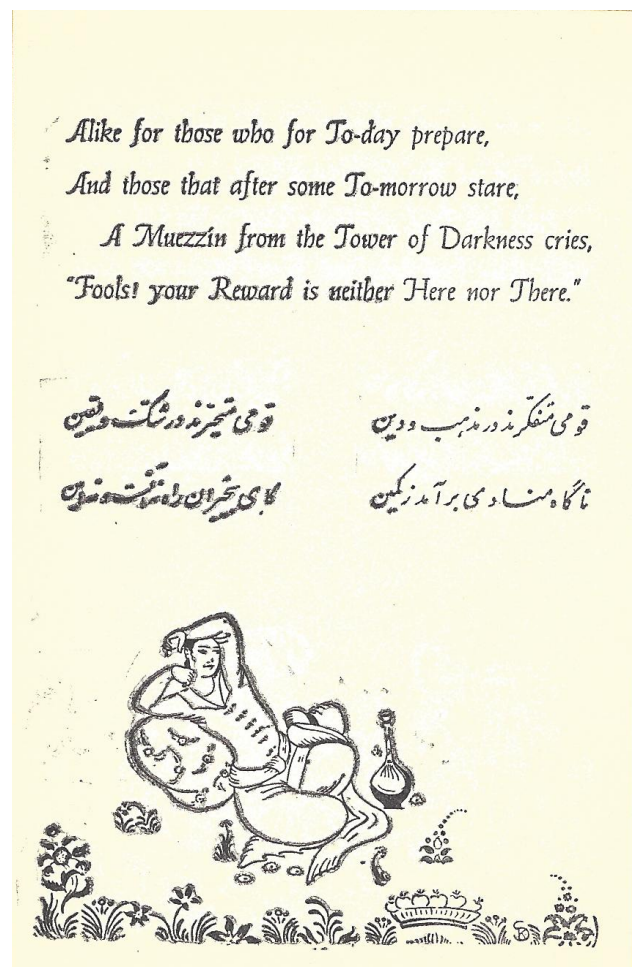 Alike for those who for To-day prepare,
And those that after some To-morrow stare,
A Muezzín from the Tower of Darkness cries,
"Fools! your Reward is neither Here nor There."
قومی متفکرند در مذهب و دین قومی متحیرند در شک و یقین
ناگاه منادی برآمد ز کمین کای بیخبران راه نه آنست و نه این